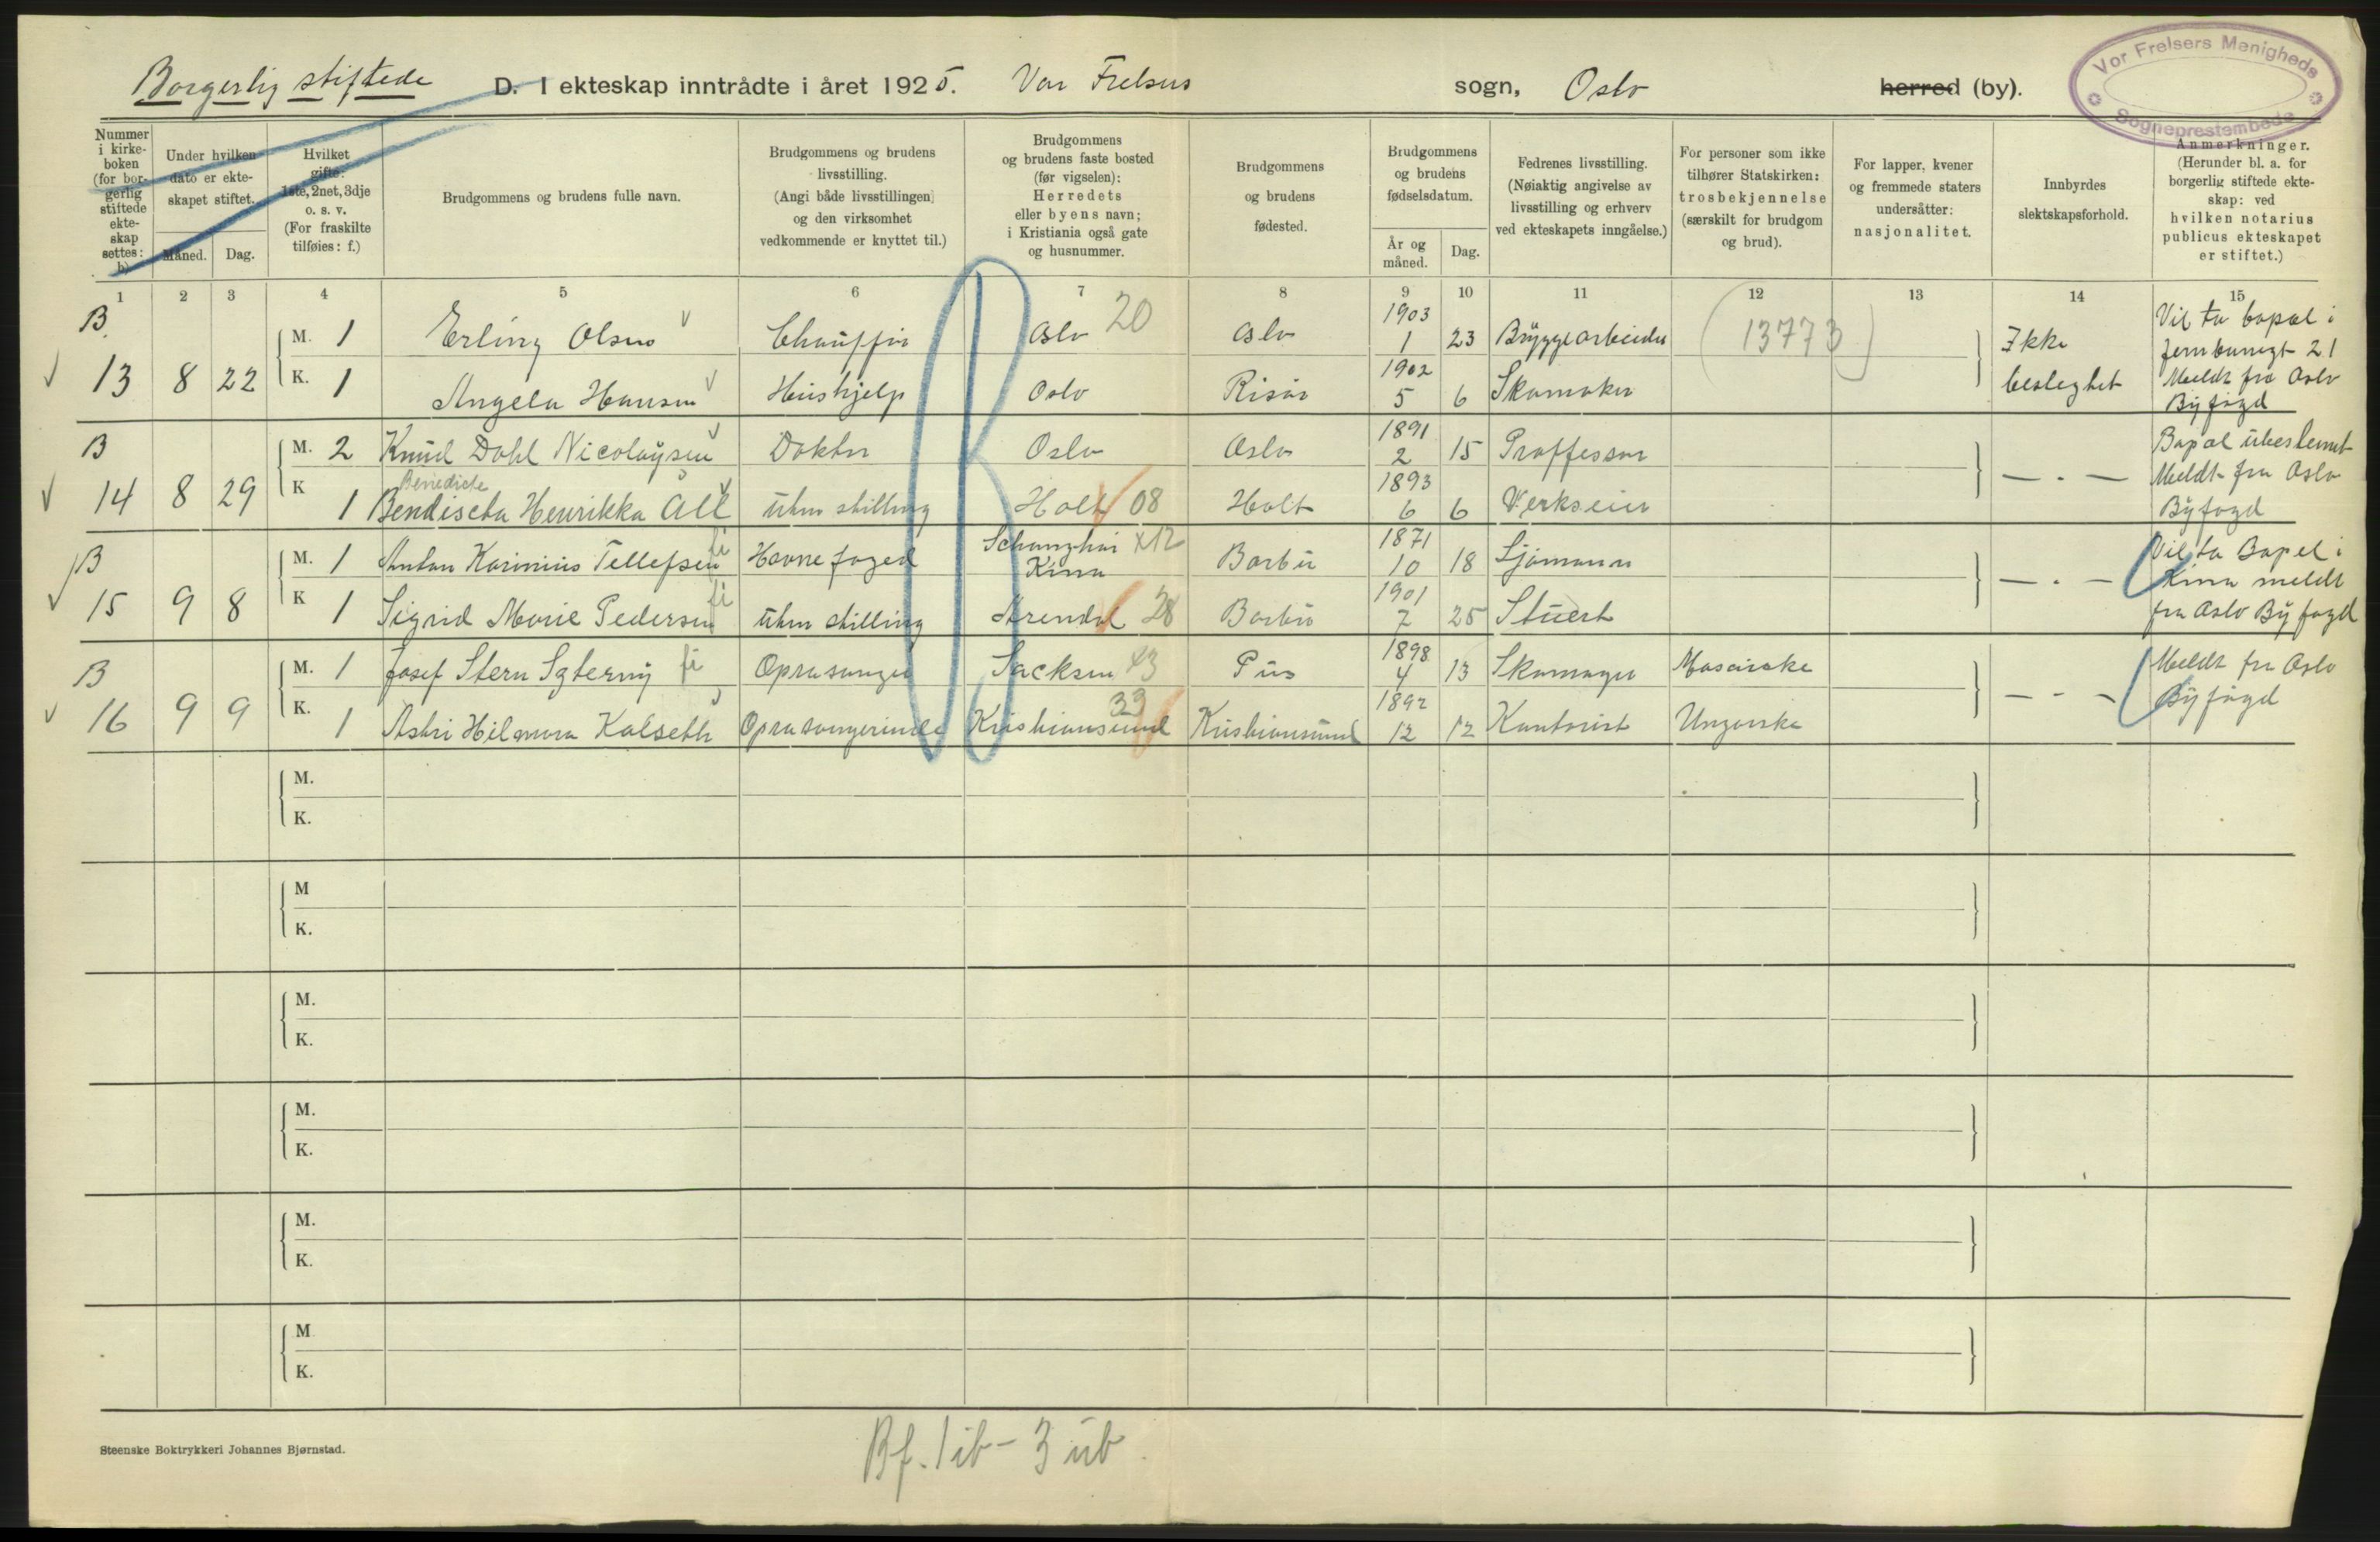 Borgerlig stiftede D. I ekteskap inntrådte i året 1925. Vor Frelsers sogn, Oslo herred (by).
Vor Frelsers Menigheds
Sogneprestembede
Nummer i kirke-boken (for bor-gerlig stiftede ekte-skap settes: b)
Under hvilken dato er ekte-skapet stiftet.
Måned. Dag.
Hvilket gifte: 1ste, 2net, 3dje o. s. v. (For fraskilte tilføies: f.)
Brudgommens og brudens fulle navn.
Brudgommens og brudens livsstilling. (Angi både livsstillingen og den virksomhet vedkommende er knyttet til.)
Brudgommens og brudens faste bosted (før vigselen): Herredets eller byens navn; i Kristiania også gate og husnummer.
Brudgommens og brudens fødested.
Brudgommens og brudens fødselsdatum.
År og måned. Dag.
Fedrenes livsstilling. (Nøiaktig angivelse av livsstilling og erhverv ved ekteskapets inngåelse.)
For personer som ikke tilhører Statskirken: trosbekjennelse (særskilt for brudgom og brud).
For lapper, kvener og fremmede staters undersåtter: nasjonalitet.
Innbyrdes slektskapsforhold.
Anmerkninger. (Herunder bl. a. for borgerlig stiftede ekte-skap: ved hvilken notarius publicus ekteskapet er stiftet.)
1 2 3 4 5 6 7 8 9 10 11 12 13 14 15
B 13 8 22
M. 1 Erling Olsen Chauffør Oslo 20 Oslo 1903 1 23 Bryggearbeider (13773)
K. 1 Angela Hansen Hushjelp Oslo Risør 1902 5 6 Skomaker
Ikke beslegtet
Vil ta bopæl i
21
Meldt fra Oslo
Byfogd
B 14 8 29
M. 2 Knud Dahl Nicolaysen Doktor Oslo Oslo 1891 2 15 Proffessor
Benedicte
K 1 Bendiseta Henrikka Aall Uten stilling Holt 08 Holt 1893 6 6 Verkseier
— " —
Bopæl ubestemt
Meldt fra Oslo
Byfogd
B 15 9 8
M. 1 Anton Karinius Tellefsen Havnefoged Schanghai x12 Kina Barbu 1871 10 18 Sjømann
K 1 Sigrid Marie Pedersen Uten stilling Arendal 28 Barbu 1901 7 25 Stuert
— " —
Vil ta Bopel i
Kina meldt
fra Oslo Byfogd
B 16 9 9
M. 1 Josef Stern Operasanger Sacksen x3 1898 4 13 Skomager Mosaiske
K. 1 Astri Hilmora Kalseth Operasangerinde Kristiansund 33 Kristiansund 1892 12 12 Kontorist Ungarske
— " —
Meldt fra Oslo
Byfogd
M.
K.
M
K.
M.
K.
M.
K.
M.
K.
M
K.
Steenske Boktrykkeri Johannes Bjørnstad.
Bf. 1 ib - 3 ub.